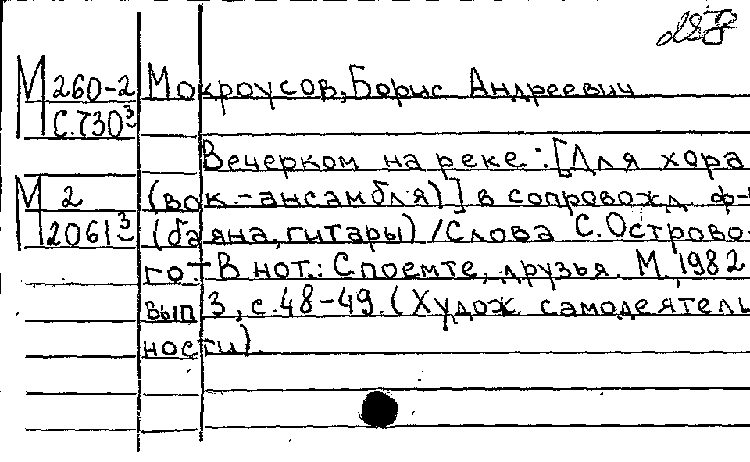 М 260-2 Мокроусов, Борис Андреевич
С.730³
Вечерком на реке: [Для хора
М 2 (вок-ансамбля)] в сопровожд. ф-
2061³ (баяна, гитары) / Слова С. Острово-
го.- В нот.: Споемте, друзья. М, 1982
вып 3, с.48-49. (Худож самодеятель
ности).